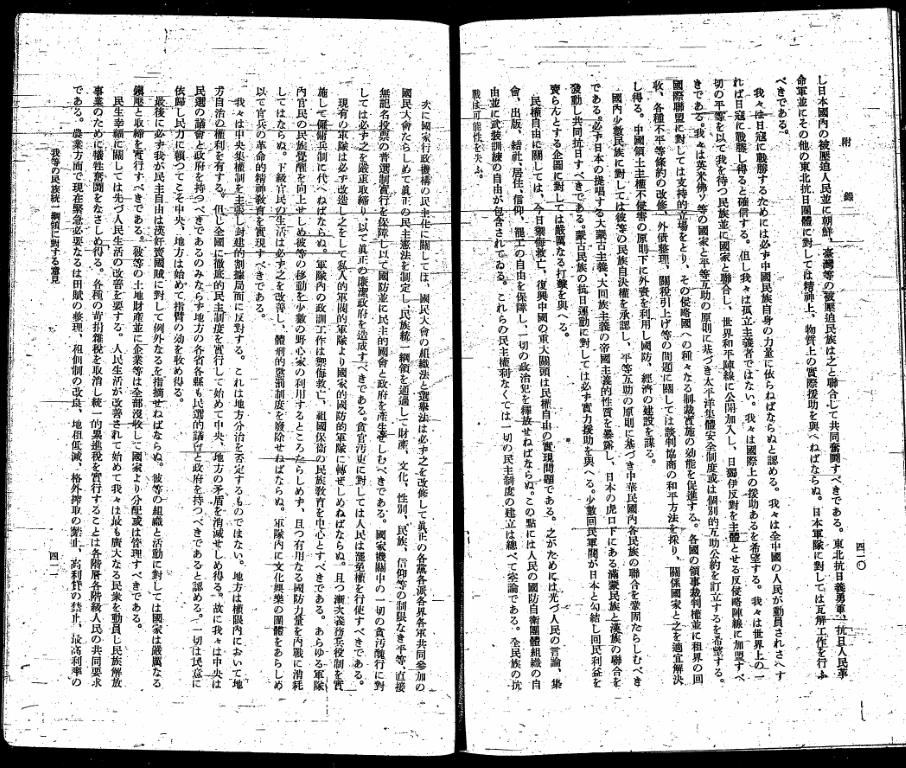 附錄
四一〇
し日本國內の被壓迫人民並に朝鮮、臺灣等の被壓迫民族は之と聯合して共同奮鬪すべきである。東北抗日義勇軍、抗日人民革
命軍並にその他の東北抗日團體に對しては精神上、物質上の實際援助を與へねばならぬ。日本軍隊に對しては瓦解工作を行ふ
べきである。
我々は日寇に戰勝するためには必ず中國民族自身の力量に依らねばならぬと認める。我々は全中國の人民が動員されさへす
れば日寇に戰勝し得ると確信する。但し我々は孤立主義者ではない。我々は國際上の援助あるを希望する。我々は世界上の一
切の平等を以て我を待つ民族並に國家と聯合し、世界和平陣線に公開加入し、日獨伊反對を主體とせる反侵略陣線に加盟すべ
きである。我々は英米佛ソ等の國家と平等互助の原則に基づき太平洋集體安全制度或は個別的互助公約を訂立するを希望する。
國際聯盟に對しては支持的立場をとり、その侵略國への種々なる制裁實施の効能を促進する。各國の領事裁判權並に租界の回
收、各種不平等條約の改修、外債整理、關稅引上げ等の問題に關しては談判協商の和平方法を採り、關係國家と之を適宜解決
し得る。中國領土主權不侵害の原則下に外資を利用し國防、經濟の建設を謀る。
國內少數民族に對しては彼等の民族自決權を承認し、平等互助の原則に基づき中華民國內各民族の聯合を鞏固たらしむべき
である。必ず日本の提唱する大蒙古主義、大回族主義の帝國主義的性質を暴露し、日本の虎口下にある滿蒙民族と漢族の聯合を
發動し共同抗日すべきである。蒙古民族の抗日運動に對しては必ず實力援助を與へる。少數回民軍閥が日本と勾結し回民利益を
賣らんとする企圖に對しては嚴厲なる打擊を與へる。
民權自由に關しては、今日禦侮救亡、復興中國の重大關頭は民權自由の實現問題である。之がためには先づ人民の言論、集
會、出版、結社、居住、信仰、罷工の自由を保障し、一切の政治犯を釋放せねばならぬ。この點には人民の國防自衞團體組織の自
由並に武裝訓練の自由が包含されてゐる。これらの民主權利なくては一切の民主制度の建立は總べて空論である。全民族の抗
戰は可能性を失ふ。
次に國家行政機構の民主化に關しては、國民大會の組織法と選擧法は必ず之を改修して眞正の各黨各派各界各軍共同參加の
國民大會たらしめて眞正の民主憲法を制定し民族統一綱領を通過して財產、文化、性別、民族、信仰等の制限なき平等、直接
無記名投票の普選制實行を保障し以て國防並に民主的國會と政府を產生せしむべきである。國家機關中の一切の貪汚醜行に對
しては必ず之を嚴重取締り、以て眞正の廉潔政府を造成すべきである。貪官汚吏に對しては人民は罷免權を行使すべきである。
現有の軍隊は必ず改造しこれをして私人的軍閥的軍隊より國家的國防的軍隊に轉ぜしめねばならぬ。且つ漸次義務兵役制を實
施して傭兵制に代へねばならぬ。軍隊內の政訓工作は禦侮救亡、祖國保衞の民族敎育を中心とすべきである。あらゆる軍隊
內官兵の民族覺醒を向上せしめ彼等の移動を少數の野心家の利用するところたらしめず、且つ有用なる國防力量を內戰に消耗
してはならぬ。下級官兵の生活は必ず之を改善し、體刑的懲罰制度を廢除せねばならぬ。軍隊內に文化娛樂の團體をあらしめ
以て官兵の革命的精神敎育を實現すべきである。
我々は中央集權制を主張し封建的割據局面に反對する。これは地方分治を否定するものではない。地方は權限內において地
方自治の權利を有する。但し全國に徹底的民主制度を實行して始めて中央、地方の矛盾を消滅せしめ得る。故に我々は中央は
民選の議會と政府を持つべきであるのみならず地方の各省各縣も民選的議會と政府を持つべきであると認める。一切は民意に
依歸し民力に賴つてこそ中央、地方は始めて指臂の効を收め得る。
最後に必ず我が民主自由は漢奸賣國賊に對して例外なるを指摘せねばならぬ。彼等の組織と活動に對しては國家は嚴厲なる
鎭壓と取締を實行すべきである。彼等の土地財產並に企業等は全部沒收して國家より分配或は管理すべきである。
民生幸福に關しては先づ人民生活の改善を要する。人民生活が改善されて始めて我々は最も廣大なる民衆を動員し民族解放
事業のために犧牲奮鬪をなさしめ得る。各種の苛捐雜稅を取消し統一的累進稅を實行することは各階層各階級人民の共同要求
である。農業方面で現在緊急必要なるは田賦の整理、租佃制の改良、地租低減、格外搾取の禁止、高利貸の禁止、最高利率の
我等の民族統一綱領に對する意見
四一一